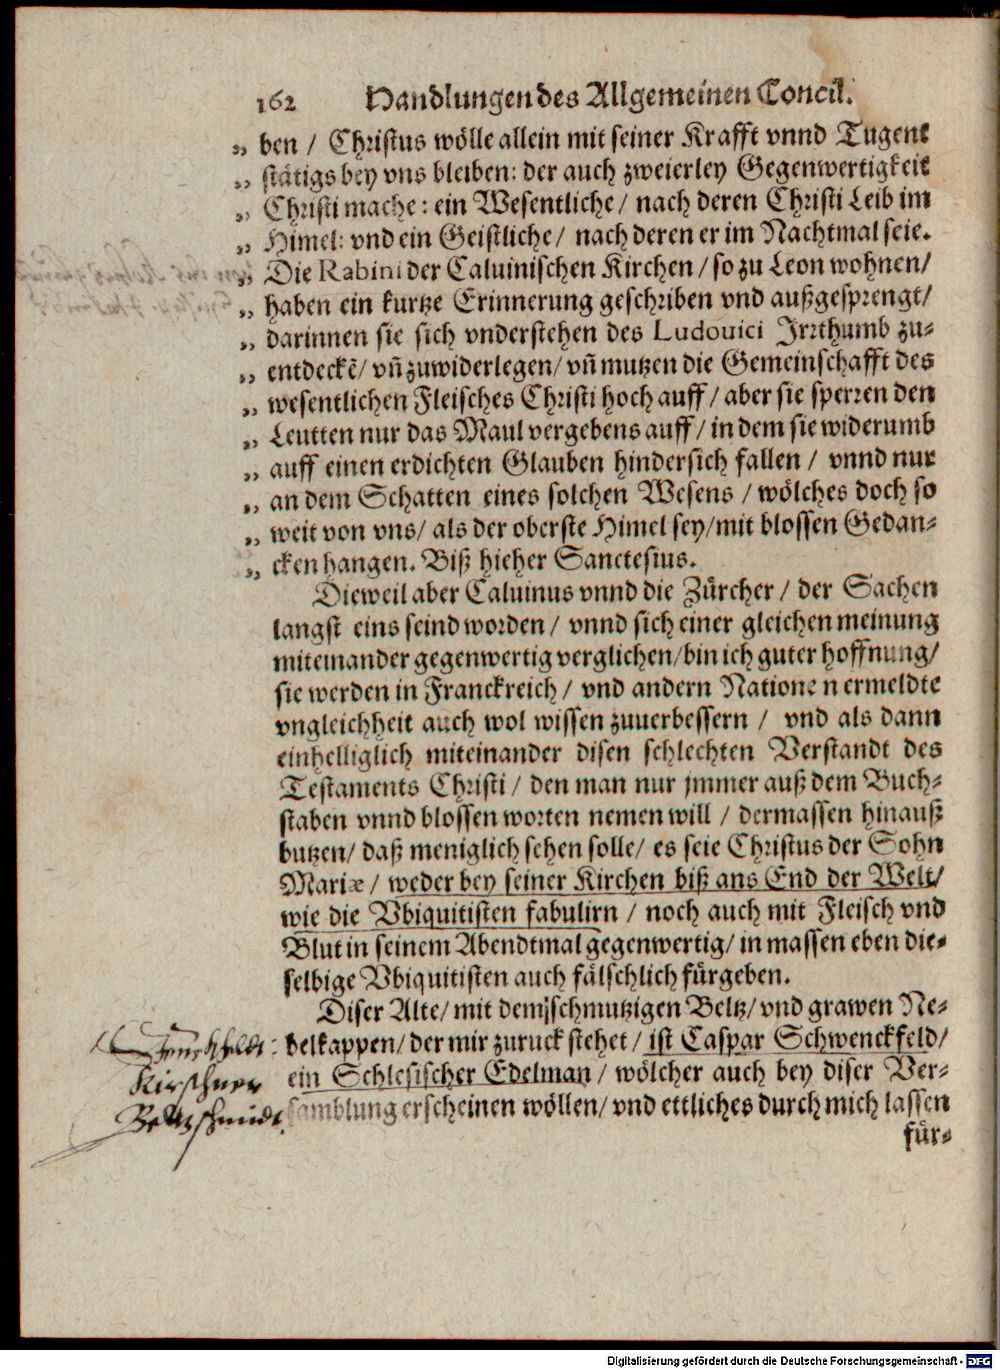 162 Handlungen des Allgemeinen Concil.
„ ben / Christus wölle allein mit seiner Krafft vnnd Tugent
„ stätigs bey vns bleiben: der auch zweierley Gegenwertigkeit
„ Christi mache: ein Wesentliche / nach deren Christi Leib im
„ Himel: vnd ein Geistliche / nach deren er im Nachtmal seie.
„ Die Rabini der Caluinischen Kirchen / so zu Leon wohnen /
„ haben ein kurtze Erinnerung geschriben vnd außgesprengt /
„ darinnen sie sich vnderstehen des Ludouici Irrthumb zu-
„ entdeckẽ / vñ zuwiderlegen / vñ mutzen die Gemeinschafft des
„ wesentlichen Fleisches Christi hoch auff / aber sie sperren den
„ Leutten nur das Maul vergebens auff / in dem sie widerumb
„ auff einen erdichten Glauben hindersich fallen / vnnd nur
„ an dem Schatten eines solchen Wesens / wölches doch so
„ weit von vns / als der oberste Himel sey / mit blossen Gedan-
„ cken hangen. Biß hieher Sanctesius.
Dieweil aber Caluinus vnnd die Zürcher / der Sachen
langst eins seind worden / vnnd sich einer gleichen meinung
miteinander gegenwertig verglichen / bin ich guter hoffnung /
sie werden in Franckreich / vnd andern Nationen ermeldte
vngleichheit auch wol wissen zuuerbessern / vnd als dann
einhelliglich miteinander disen schlechten Verstandt des
Testaments Christi / den man nur jmmer auß dem Buch-
staben vnnd blossen worten nemen will / dermassen hinauß
butzen / daß meniglich sehen solle / es seie Christus der Sohn
Mariæ / weder bey seiner Kirchen biß ans End der Welt /
wie die Vbiquitisten fabulirn / noch auch mit Fleisch vnd
Blut in seinem Abendtmal gegenwertig / in massen eben die-
selbige Vbiquitisten auch fälschlich fürgeben.
Diser Alte / mit dem schmutzigen Beltz / vnd grawen Ne-
belkappen / der mir zuruck stehet / ist Caspar Schwenckfeld /
ein Schlesischer Edelman / wölcher auch bey diser Ver-
samblung erscheinen wöllen / vnd ettliches durch mich lassen
für-
Kirschner
Digitalisierung gefördert durch die Deutsche Forschungsgemeinschaft - DFG